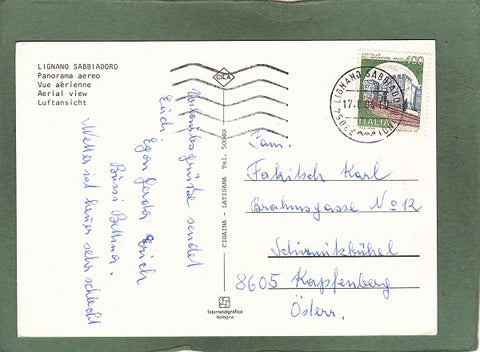 LIGNANO SABBIADORO
Panorama aereo
Vue aérienne
Aerial view
Luftansicht
CILA
Urlaubsgrüße sendet
Euch
Egon Gerda Erich
Bussi Bettina.
Wetter ist heuer sehr schlecht
CIGAINA - LATISANA Tel. 50040
fotometalgrafica
bologna
400
ITALIA
33054 LIGNANO SABBIADORO
Fam.
Fakitsch Karl
Brahmsgasse No 12
Schirmitzbühel
8605 Kapfenberg
Österr.